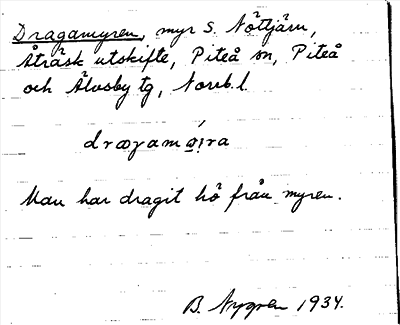 Dragamyren, myr S. Nöttjärn,
Åträsk utskifte, Piteå sn, Piteå
och Älvsby tg, Norrb.l.
Man har dragit hö från myren.
B. Nygren 1934.